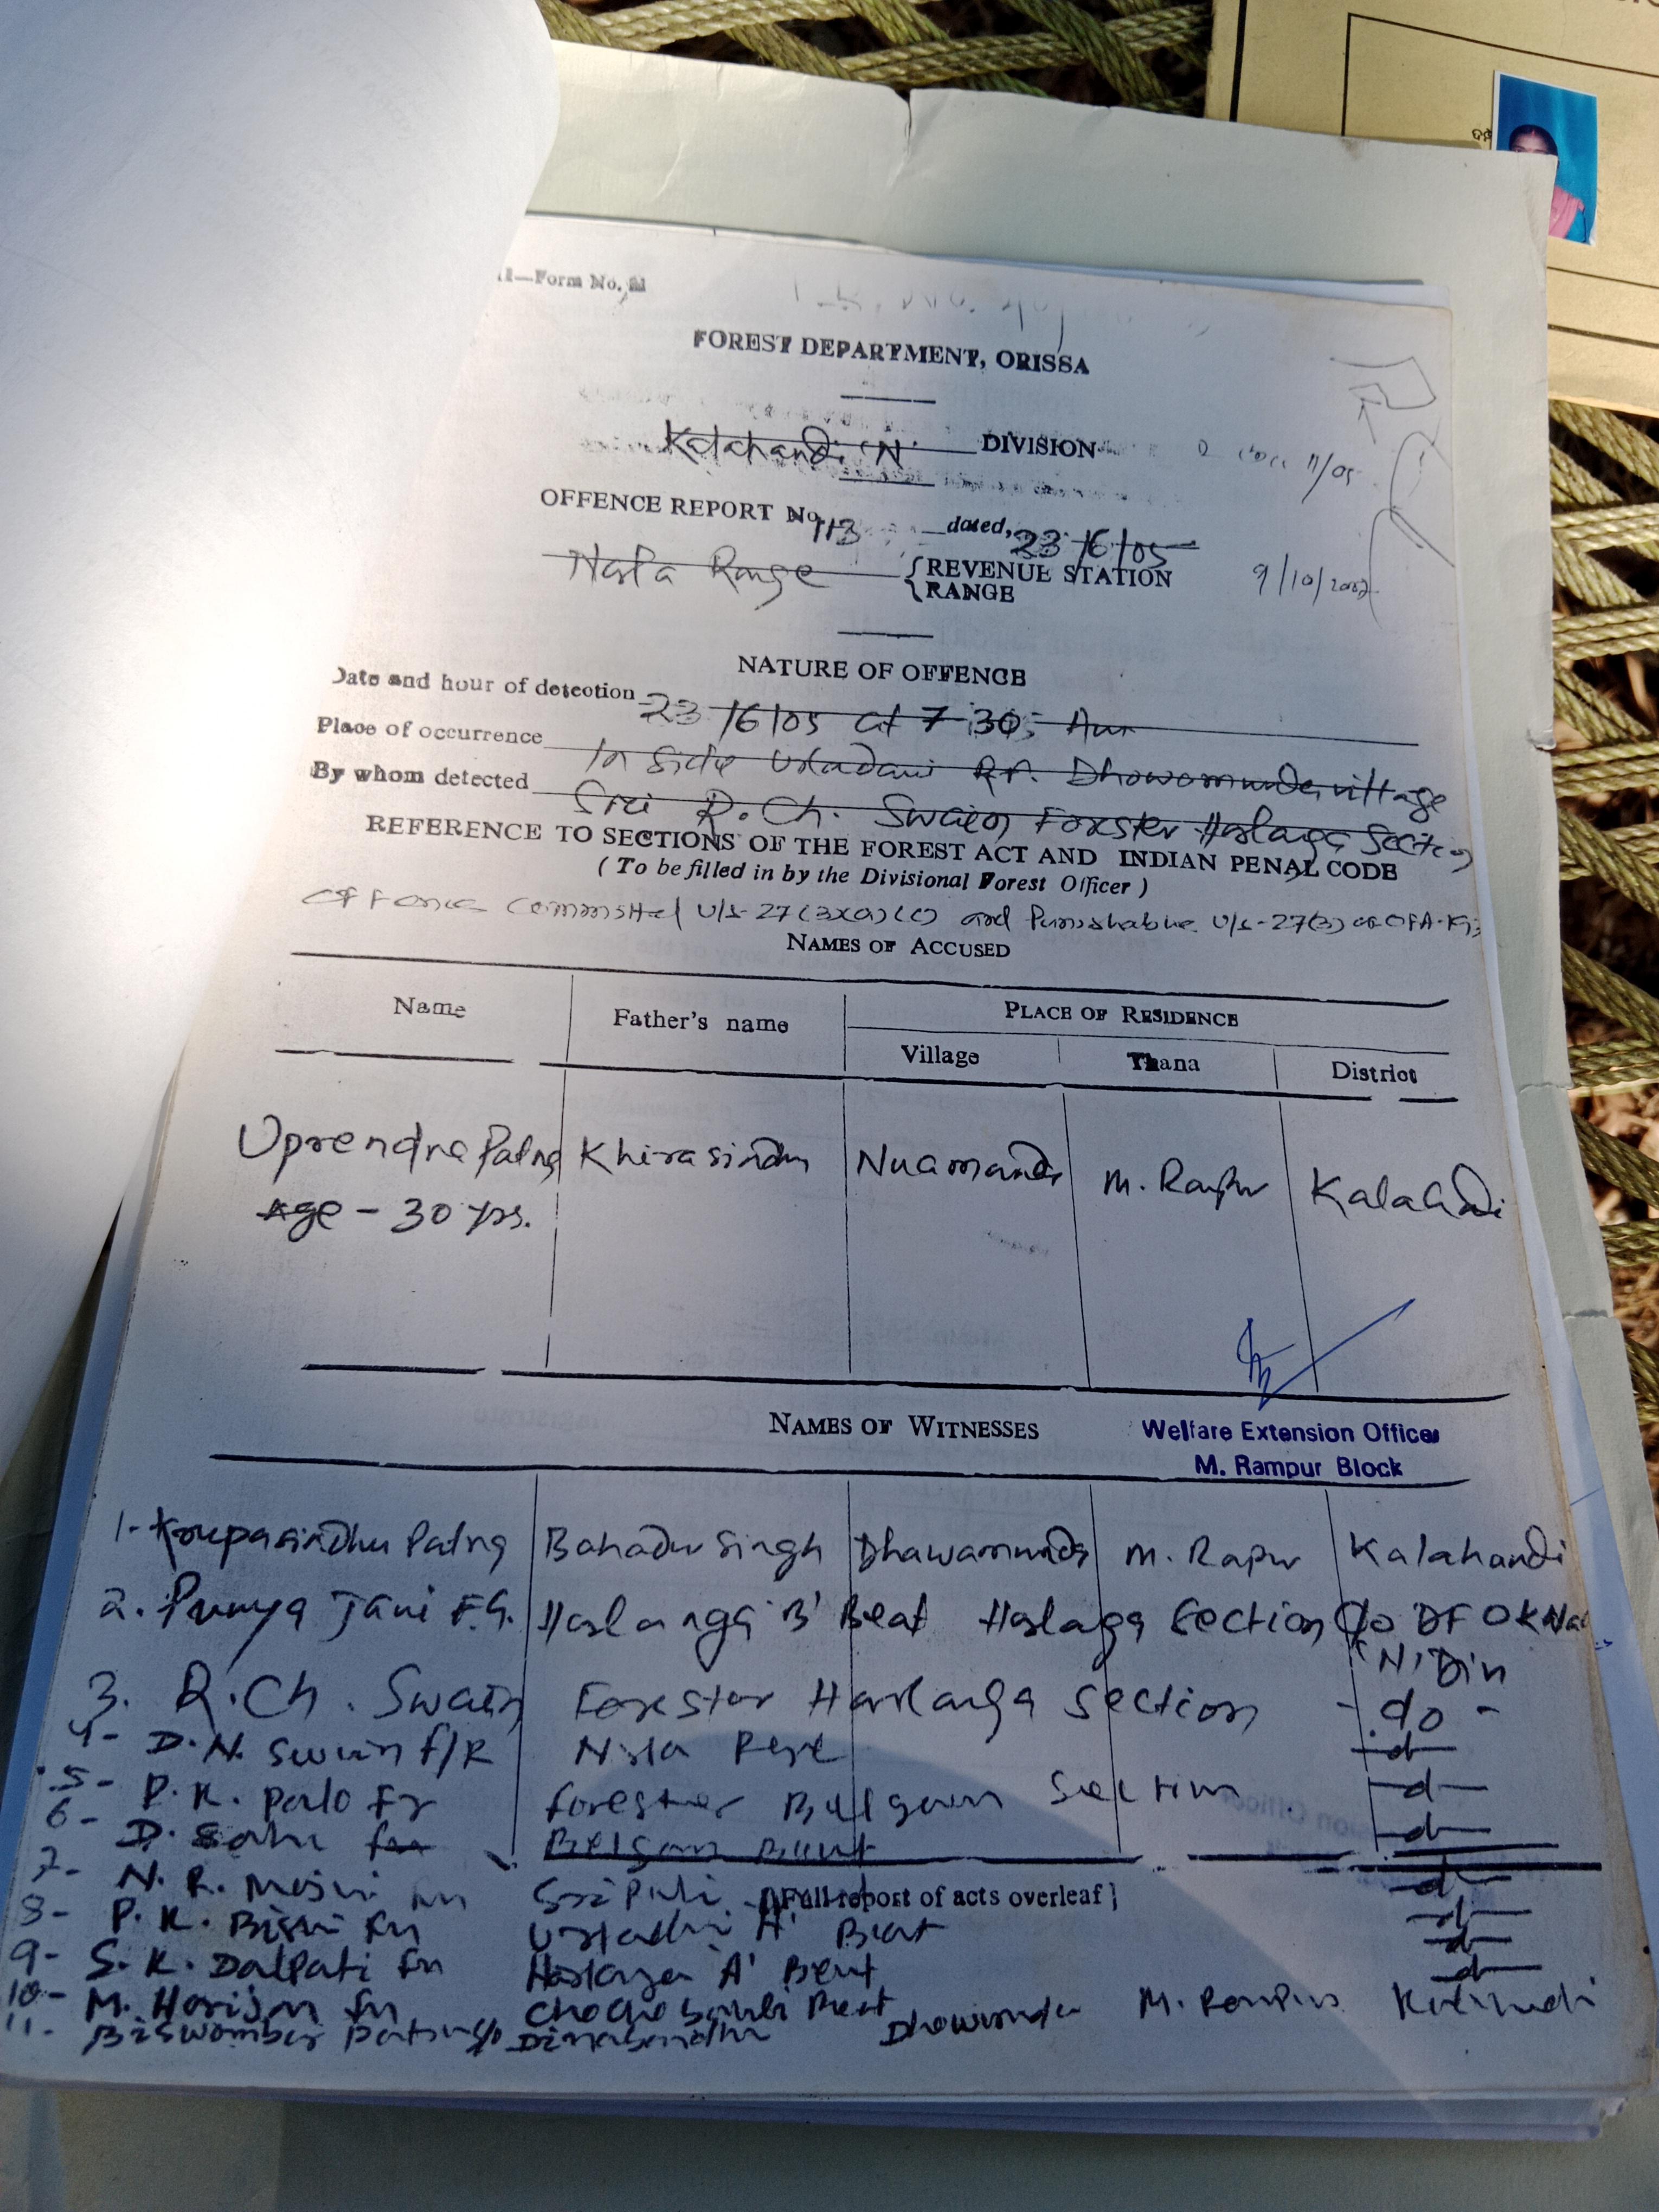 —Form No.
FOREST DEPARTMENT, ORISSA
Kalahandi 'N' DIVISION
11/05
OFFENCE REPORT No. 113 dated, 23/6/05
Narla Range { REVENUE STATION
RANGE
9/10/2007
NATURE OF OFFENCE
Date and hour of detection 23/6/05 at 7-30 Am
Place of occurrence In Side Urladani RF. Dhowamunda village
By whom detected Sri R. Ch. Swain Forester Haslaga Section
REFERENCE TO SECTIONS OF THE FOREST ACT AND INDIAN PENAL CODE
( To be filled in by the Divisional Forest Officer )
Offence Committed U/S-27(3)(a)(c) and Punishable U/S-27(3) of OFA
NAMES OF ACCUSED
Name Father's name PLACE OF RESIDENCE
Village Thana District
Uprendra Patra Khirasindhu Nuamunda M. Rapur Kalahandi
Age - 30 yrs.
NAMES OF WITNESSES
Welfare Extension Officer
M. Rampur Block
1- Krupasindhu Patra Bahadur Singh Dhawamunda M. Rapur Kalahandi
2. Punya Jani F.G. Haslanga 'B' Beat Haslaga Section O/o DFO
'N' Divn
3. R. Ch. Swain Forester Haslanga Section - do -
4- D. N. Swain F/R Narla -d-
5- P. K. Palo Fr Forester Belgaon Section -d-
6- D. Sahu Belgaon Beat -d-
7- N. R. Meshri Sripali -d-
[Full report of acts overleaf]
8- P. K. Bishi Urladani 'A' Beat -d-
9- S. K. Dalpati Haslanga 'A' Beat -d-
10- M. Harijan Beat -d-
11- Biswambar Patra S/o Dinabandhu Dhowamunda M. Rampur Kalahandi